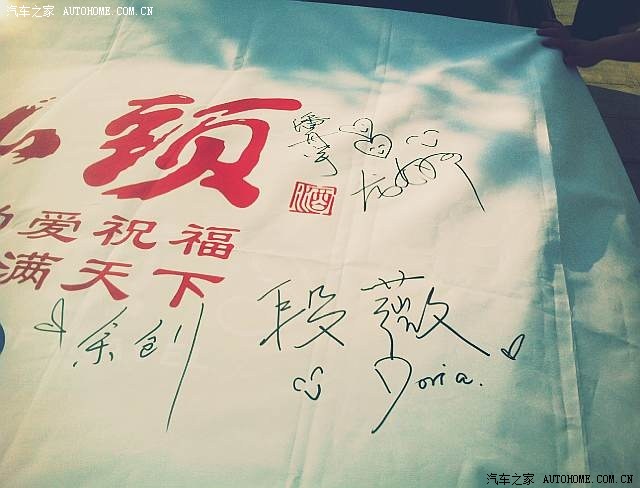 汽车之家 AUTOHOME.COM.CN
颐
爱祝福
满天下
余创
段薇
Doria.
汽车之家 AUTOHOME.COM.CN